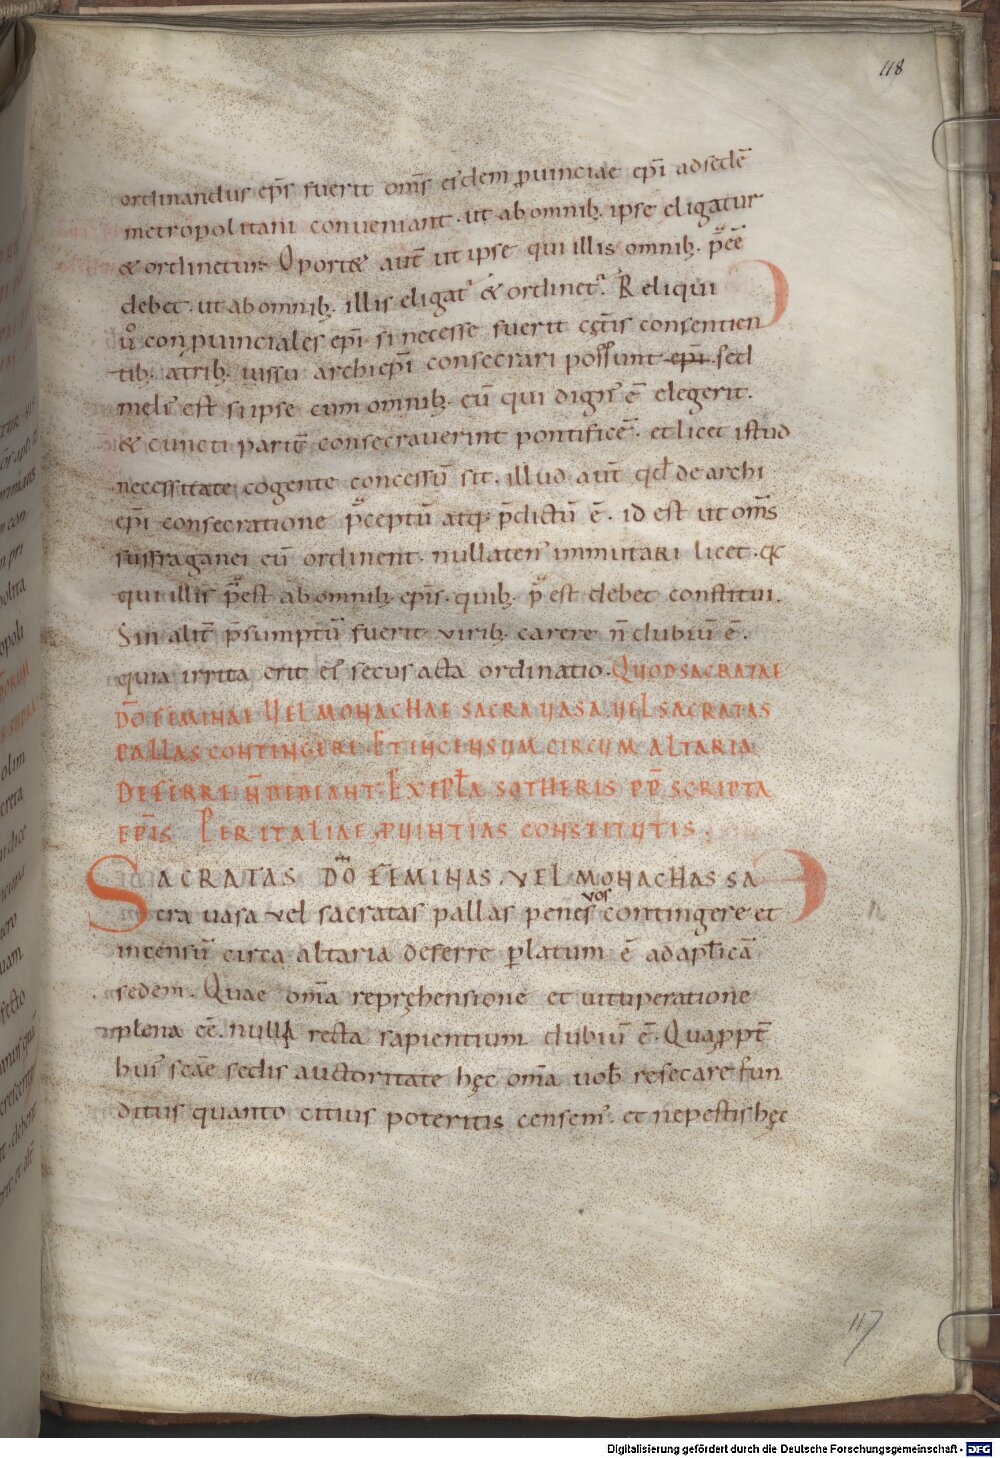 118
ordinandus ep̄s fuerit om̄s eiꝰdem ꝓuinciae ep̄i ad sedē
metropolitani conueniant · ut ab omnibꝫ ipse eligatur
& ordinetur. Oport& aut̄ ut ipse qui illis omnibꝫ. p̄eē
debet · ut ab omnibꝫ. illis eligat᷑ & ordinet᷑. Reliqui
ů conprouinciales ep̄i si necesse fuerit cęt̄is consentien
tibꝫ. a trib. iussu archiep̄i consecrari possunt ep̄i sed
meliꝰ est si ipse cum omnibꝫ. eū qui dignꝰ ē elegerit.
& cuncti parit̄ consecrauerint pontificē. et licet istud
necessitate cogente concessū sit. illud aut̄ qd̄ de archi
ep̄i consecratione p̄ceptū atq; p̄dictū ē. id est ut om̄s
suffraganei eū ordinent. nullatenꝰ inmutari licet. q̄
qui illis p̄est ab omnibꝫ ep̄is. quibꝫ. p̄ est debet constitui.
Sin alit̄ p̄sumptū fuerit viribꝫ carere n̄ dubiū ē.
quia irrita erit eiꝰ secus acta ordinatio. QUOD SACRATAE
D̄O FEMINAE VEL MONACHAE SACRA VASA. VEL SACRATAS
PALLAS CONTINGERE. ET INCENSUM CIRCUM ALTARIA
DEFERRE N̄ DEBEANT. EX EPL̄A SOTHERIS PP̄ SCRIPTA
EP̄IS PER ITALIAE ꝓVINTIAS CONSTITUTIS.
SACRATAS D̄O FEMINAS. VEL MONACHAS SA
cra uasa vel sacratas pallas penes vos contingere et
incensū circa altaria deferre ꝑlatum ē ad apl̄icā
sedem. Quae om̄a repręhensione et uituperatione
plena eē. nulli recta sapientium dubiū ē. Quappt̄
huiꝰ sc̄ae sedis auctoritate hęc om̄a uob̄ resecare fun
ditus quanto citius poteritis censemꝰ. et ne pestis hęc
117
Digitalisierung gefördert durch die Deutsche Forschungsgemeinschaft - DFG